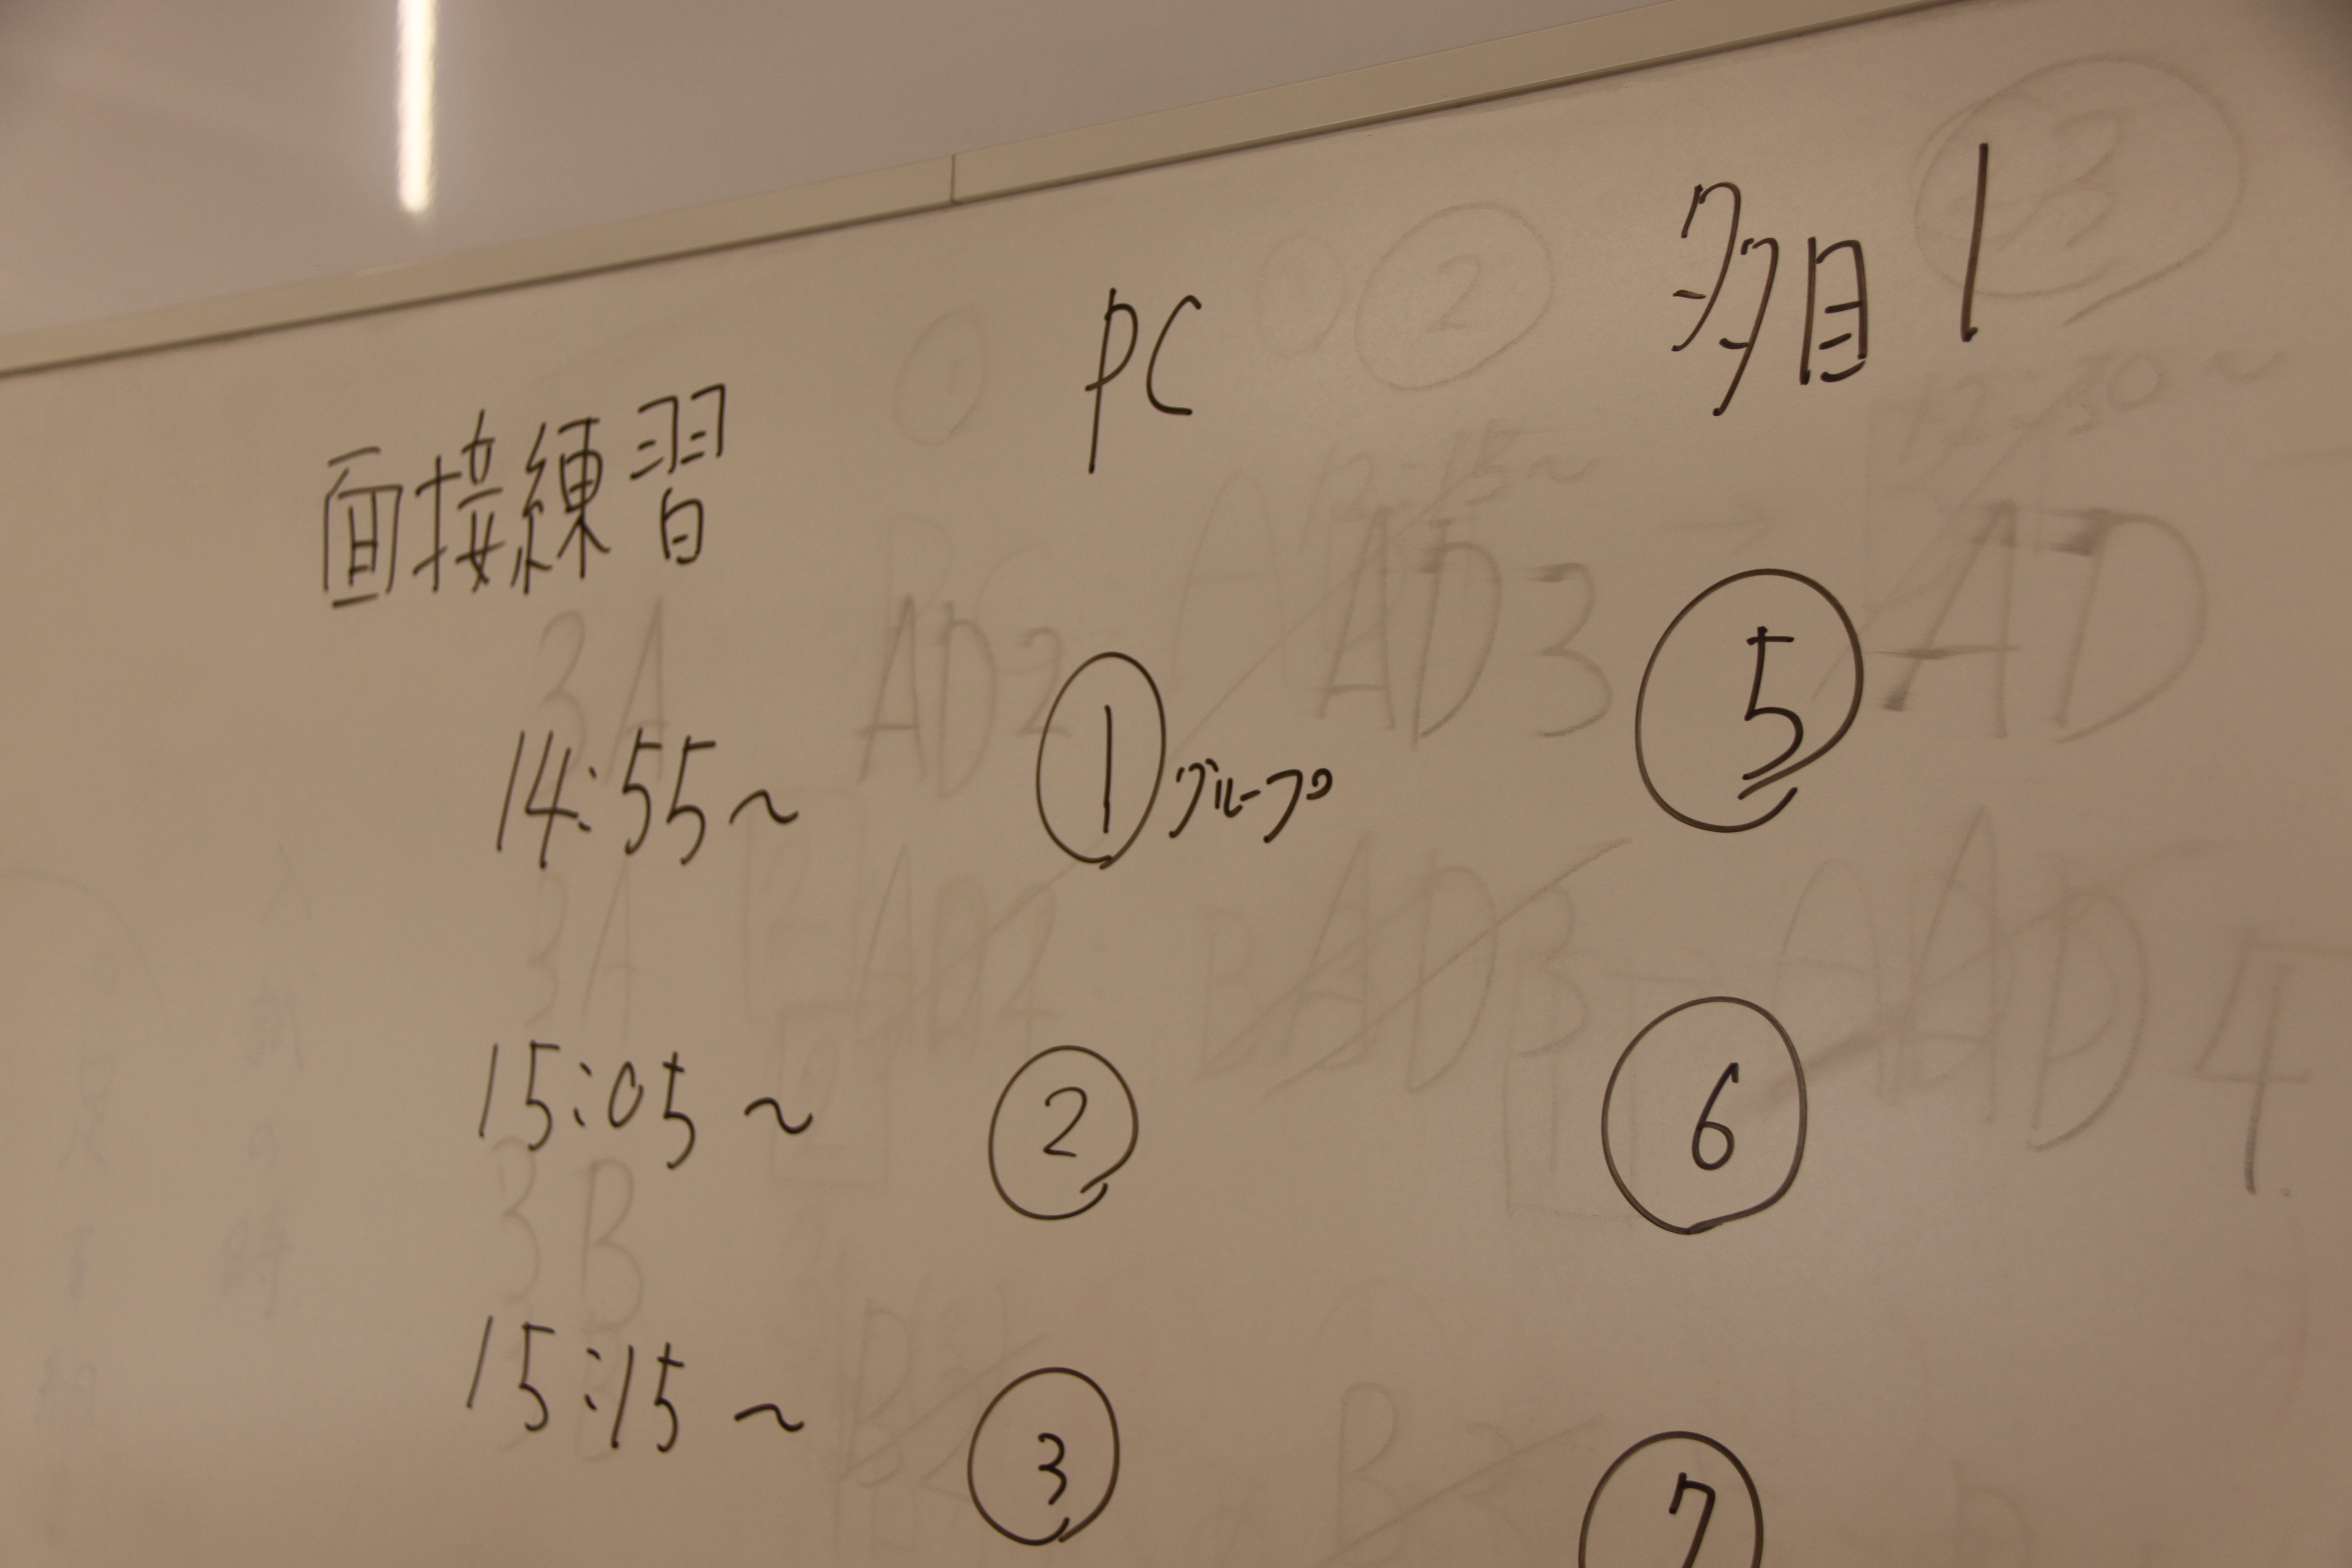 面接練習 PC 多目1
14:55~ ①グループ ⑤
15:05~ ② ⑥
15:15~ ③ ⑦